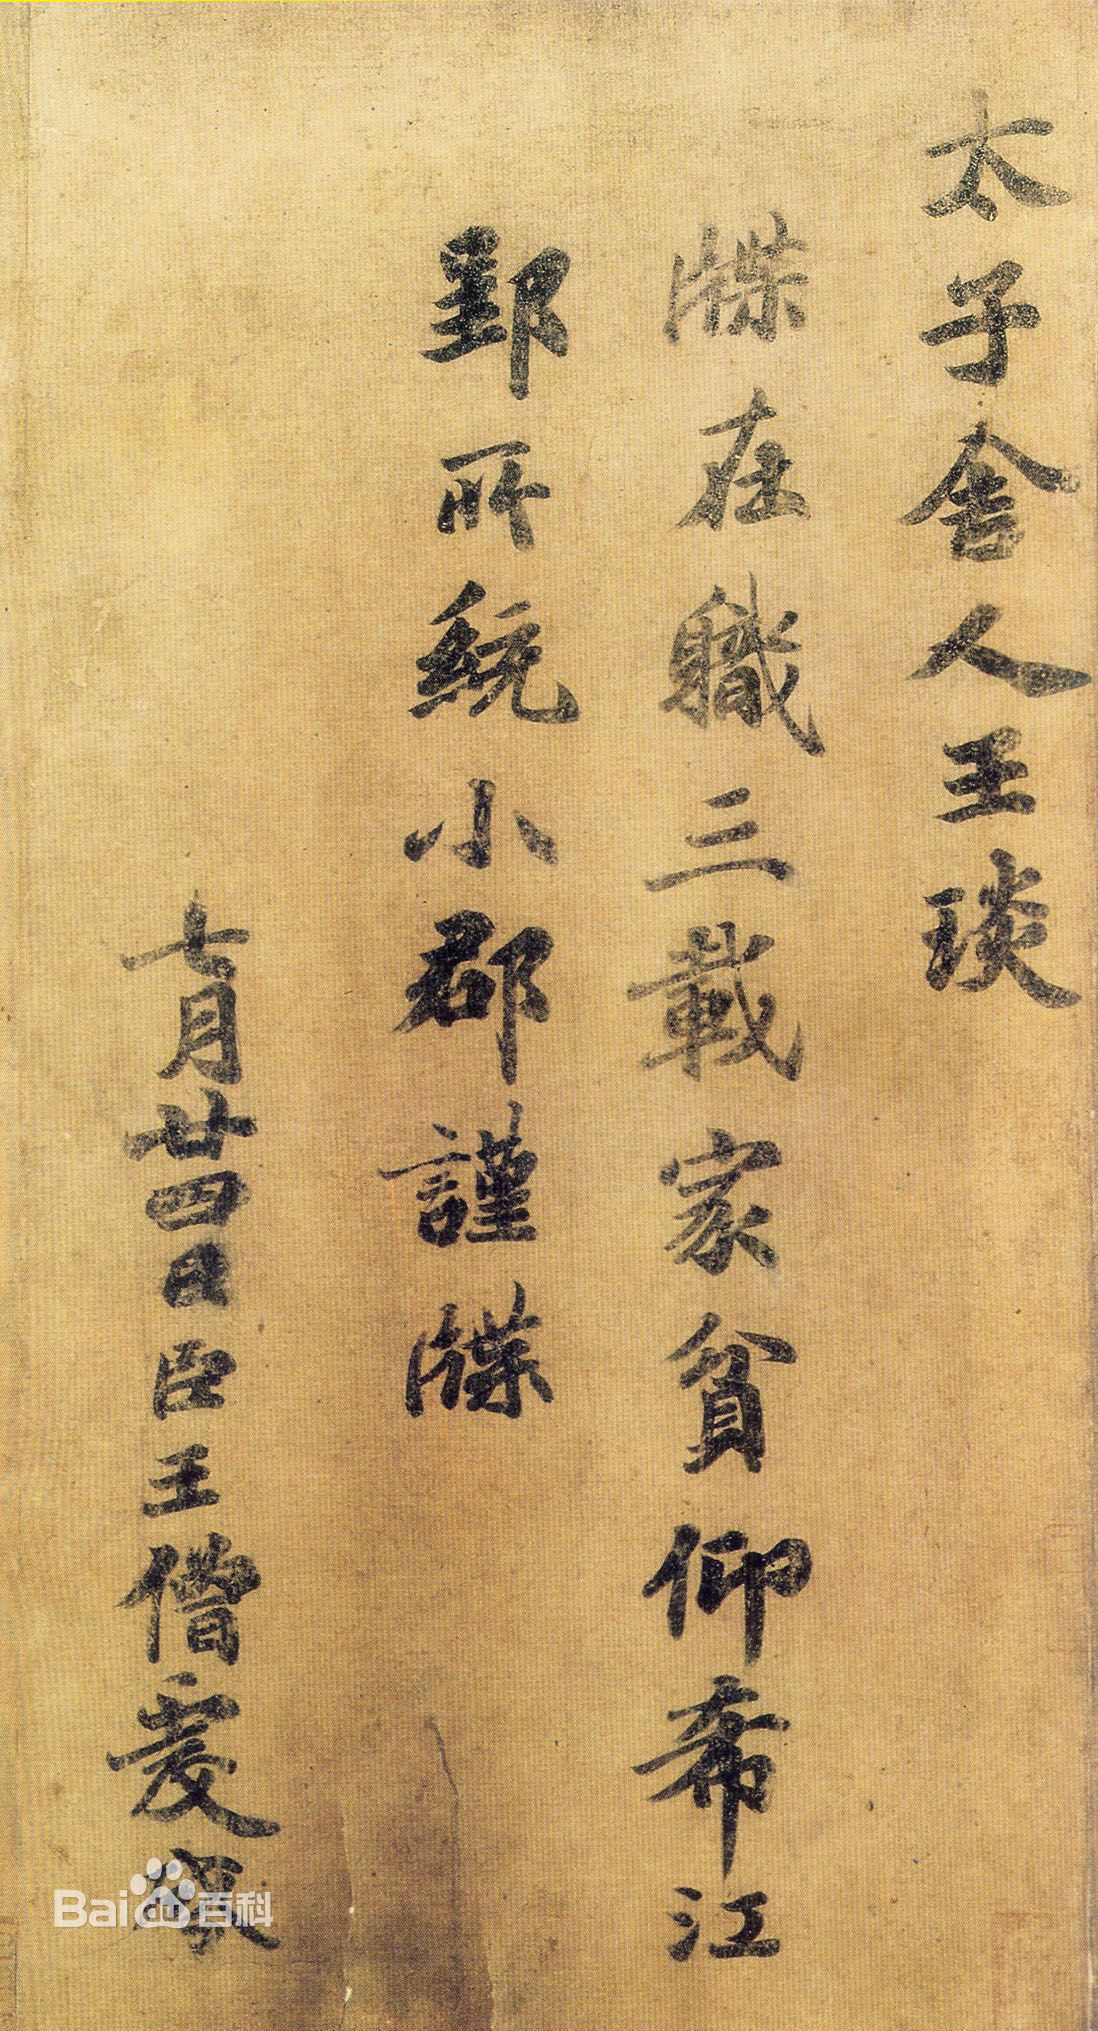 太子舍人王琰
牒在職三載家貧仰希江
郢所統小郡謹牒
七月廿四日臣王僧虔
Bai百科